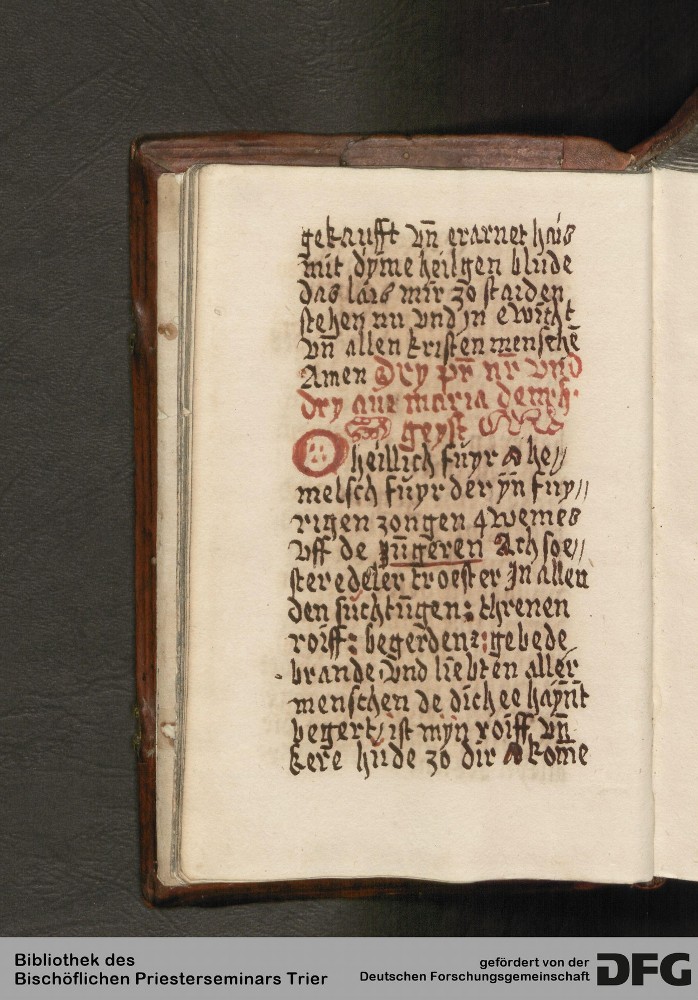 gekaufft vn̄ erarnet hais
mit dyme heilgen blude
das lais mir zo staiden
stehen nu vnd jn ewicht
vn̄ allen kristen menschē
Amen Dry pr̄ nr̄ vnd
dry aue maria dem h.
geyst
O heillich fuyr O he//
melsch fuyr der yn̄ fuy//
rigen zongen qwemes
vff de jūgeren Ach soe//
ster edeler troester In allen
den suchtūgen: threnen
roiff: begerden: gebede
brande, vnd liebten aller
menschen de dich ee hayn̄t
begert, ist myn roiff vn̄
kere hude zo dir O kom̄e
Bibliothek des
Bischöflichen Priesterseminars Trier
gefördert von der
Deutschen Forschungsgemeinschaft
DFG